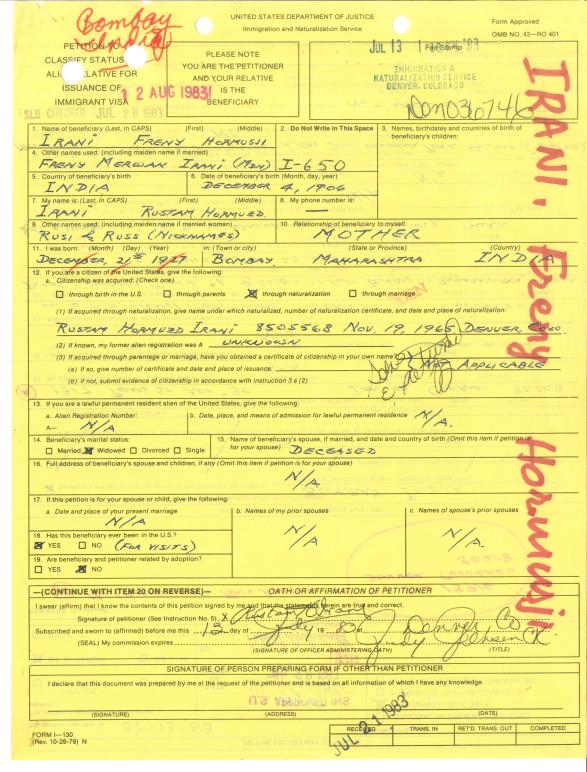 Bombay
India
UNITED STATES DEPARTMENT OF JUSTICE
Immigration and Naturalization Service
Form Approved
OMB NO. 43—RO 401
PETITION TO
CLASSIFY STATUS
ALIEN RELATIVE FOR
ISSUANCE OF
IMMIGRANT VISA
12 AUG 1983
SLB CHECKED JUL 28 1983
PLEASE NOTE
YOU ARE THE PETITIONER
AND YOUR RELATIVE
IS THE
BENEFICIARY
JUL 13
Fee Stamp
'83
IMMIGRATION &
NATURALIZATION SERVICE
DENVER, COLORADO
Den036746
IRANI, Freny Hormusji
1. Name of beneficiary (Last, in CAPS) (First) (Middle)
IRANI FRENY HORMUSJI
2. Do Not Write in This Space
I-650
3. Names, birthdates and countries of birth of beneficiary's children:
4. Other names used: (including maiden name if married)
FRENY MERWAN IRANI (MRS)
5. Country of beneficiary's birth
INDIA
6. Date of beneficiary's birth (Month, day, year)
DECEMBER 4, 1906
7. My name is: (Last, in CAPS) (First) (Middle)
IRANI RUSTAM HORMUZD
8. My phone number is:
—
9. Other names used: (including maiden name if married woman)
RUSI & RUSS (NICKNAMES)
10. Relationship of beneficiary to myself
MOTHER
11. I was born: (Month) (Day) (Year) in: (Town or city) (State or Province) (Country)
DECEMBER, 21st 1927 BOMBAY MAHARASHTRA INDIA
12. If you are a citizen of the United States, give the following:
a. Citizenship was acquired: (Check one)
through birth in the U.S. through parents through naturalization through marriage
(1) If acquired through naturalization, give name under which naturalized, number of naturalization certificate, and date and place of naturalization:
RUSTAM HORMUZD IRANI 8505568 NOV. 19, 1965, DENVER, COLO.
(2) If known, my former alien registration was A UNKNOWN
(3) If acquired through parentage or marriage, have you obtained a certificate of citizenship in your own name?
NOT APPLICABLE
(a) If so, give number of certificate and date and place of issuance:
(b) If not, submit evidence of citizenship in accordance with instruction 3 a (2)
13. If you are a lawful permanent resident alien of the United States, give the following:
a. Alien Registration Number:
A— N/A
b. Date, place, and means of admission for lawful permanent residence
N/A.
14. Beneficiary's marital status:
Married Widowed Divorced Single
15. Name of beneficiary's spouse, if married, and date and country of birth (Omit this item if petition is for your spouse)
DECEASED
16. Full address of beneficiary's spouse and children, if any (Omit this item if petition is for your spouse)
N/A
17. If this petition is for your spouse or child, give the following:
a. Date and place of your present marriage
N/A
b. Names of my prior spouses
N/A
c. Names of spouse's prior spouses
N/A.
18. Has this beneficiary ever been in the U.S.?
YES NO (FOR VISITS)
19. Are beneficiary and petitioner related by adoption?
YES NO
—(CONTINUE WITH ITEM 20 ON REVERSE)—
OATH OR AFFIRMATION OF PETITIONER
I swear (affirm) that I know the contents of this petition signed by me and that the statements herein are true and correct.
Signature of petitioner (See Instruction No. 5). X
Subscribed and sworn to (affirmed) before me this 13 day of July 19 83 at Denver CO
(SEAL) My commission expires
(SIGNATURE OF OFFICER ADMINISTERING OATH) (TITLE)
SIGNATURE OF PERSON PREPARING FORM IF OTHER THAN PETITIONER
I declare that this document was prepared by me at the request of the petitioner and is based on all information of which I have any knowledge.
(SIGNATURE) (ADDRESS) (DATE)
FORM I—130
(Rev. 10-28-79) N
RECEIVED TRANS. IN RET'D. TRANS. OUT COMPLETED
JUL 21 1983